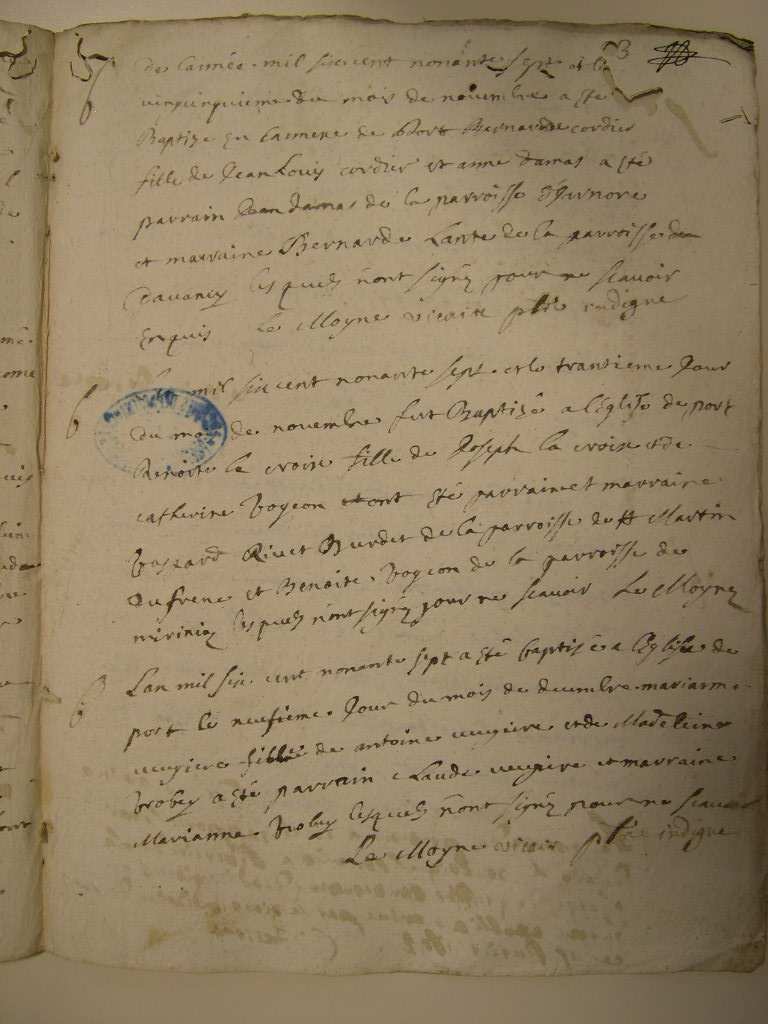 73
b de lannee mil six cent nonante sept et le
vingcinquieme du mois de novembre a este
Baptize en lannexe de Port Bernarde cordier
fille de Jean Louis cordier et anne damas a esté
parrain Jean damas de la parroisse
et marraine Bernarde Lante de la parroisse de
lesquels nont signé pour ne scavoir
Enquis Le Moyne vicaire pbre indigne
b mil six cent nonante sept et le trantieme Jour
du mois de novembre fut Baptizé a léglise de port
Benoite la croix fille de Joseph la croix et de
catherine Vogeon ont esté parrain et marraine
Rivet Burdet de la parroisse de st Martin
dufrene et Benoite Vogeon de la parroisse de
lesquels nont signé pour ne scavoir Le Moyne
b Lan mil six cent nonante sept a esté baptisé a léglise de
port le neufieme Jour du mois de decembre marianne
vugiere fille de antoine vugiere et de Madeleine
a esté parrain claude vugiere et marraine
Marianne lesquels nont signé pour ne scavoir
Le Moyne vicair pbre indigne